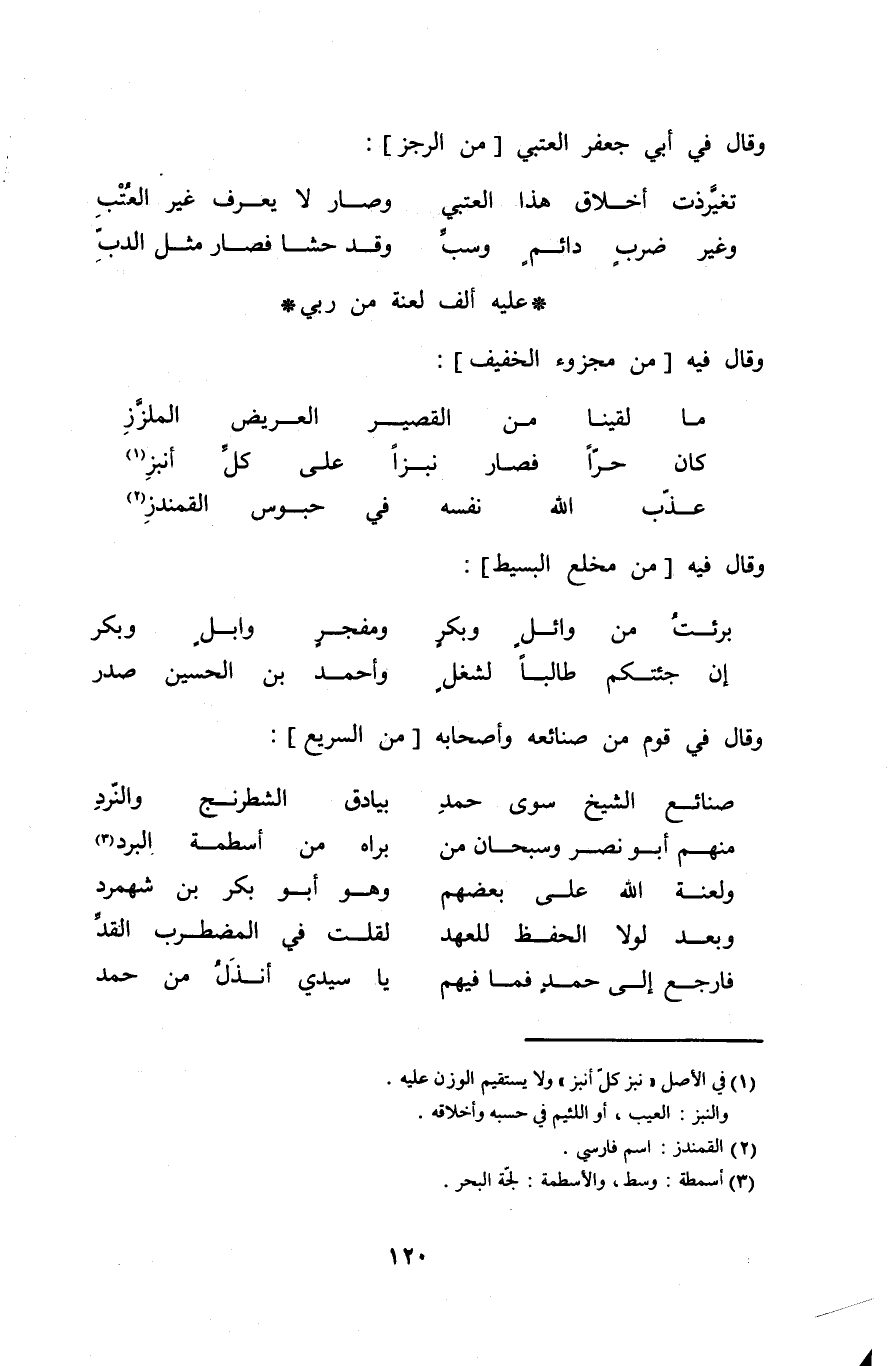 وقال في أبي جعفر العتبي [ من الرجز ] :
تغيَّرذت أخـلاق هذا العتبي وصـار لا يعـرف غير العُتْبِ
وغير ضربٍ دائـمٍ وسبٍّ وقـد حشـا فصـار مثـل الدبِّ
*عليه ألف لعنة من ربي*
وقال فيه [ من مجزوء الخفيف ] :
مـا لقينـا مـن القصيـر العـريض الملزَّزِ
كان حـرّاً فصـار نبـزاً علـى كلِّ أنبزِ(١)
عـذّب الله نفسه في حبـوس القمندزِ(٢)
وقال فيه [ من مخلع البسيط] :
برئـتُ من وائـلٍ وبكرٍ ومفجـرٍ وابـلٍ وبكر
إن جئتـكم طالبـاً لشغلٍ وأحمـد بن الحسين صدر
وقال في قوم من صنائعه وأصحابه [ من السريع ] :
صنائـع الشيخ سوى حمدِ بيادق الشطرنـج والنّردِ
منهـم أبـو نصـر وسبحـان من براه من أسطمـة البرد(٣)
ولعنـة الله علـى بعضهم وهـو أبـو بكر بن شهمرد
وبعـد لولا الحفـظ للعهد لقلـت في المضطـرب القدِّ
فارجـع إلـى حمـدٍ فمـا فيهم يا سيدي أنـذَلُ من حمد
(١) في الأصل « نبز كلّ أنبز » ولا يستقيم الوزن عليه .
والنبز : العيب ، أو اللئيم في حسبه وأخلاقه .
(٢) القمندز : اسم فارسي .
(٣) أسمطة : وسط ، والأسطمة : لجّة البحر .
١٢٠